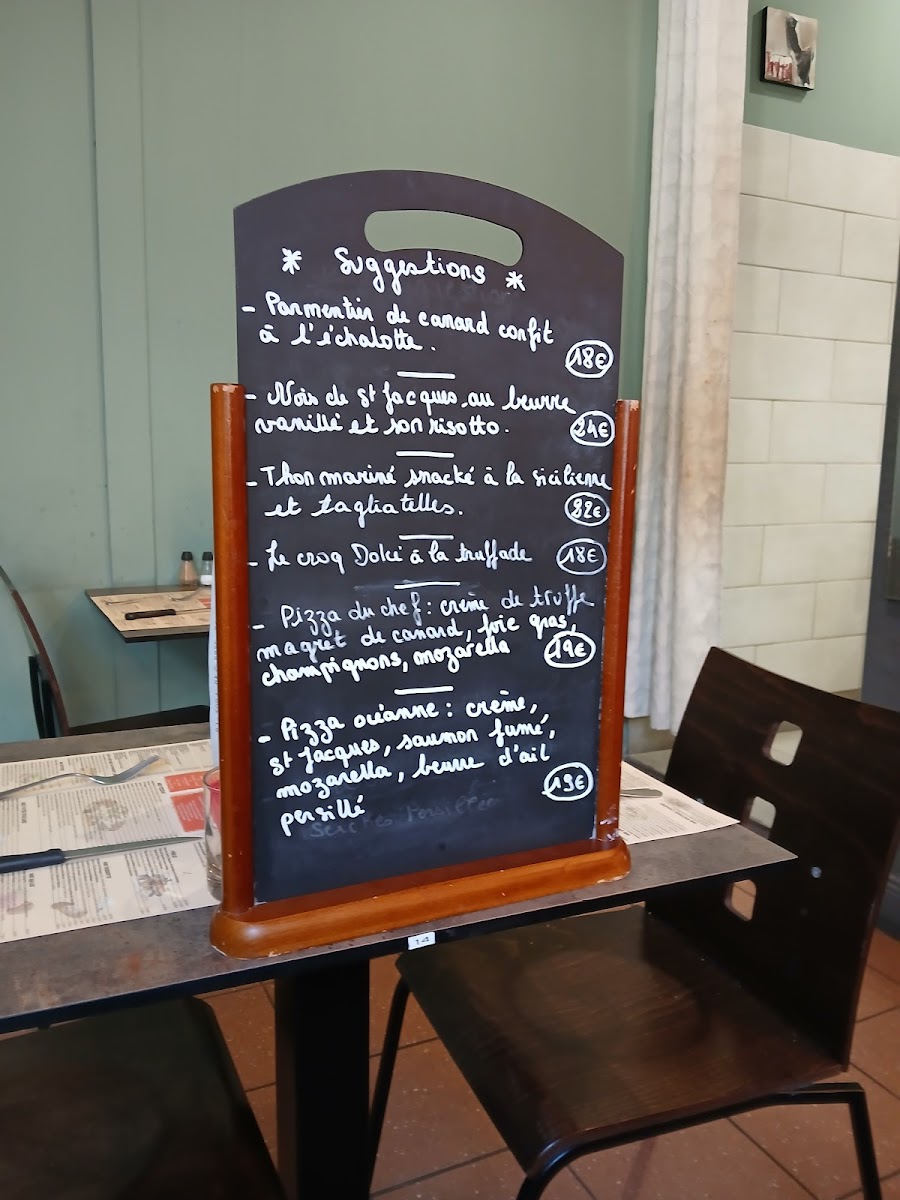 * Suggestions *
- Parmentier de canard confit
à l'échalotte.
18€
- Noix de St Jacques au beurre
vanillé et son risotto.
24€
- Thon mariné snacké à la sicilienne
et tagliatelles.
22€
- Le croq Dolci à la truffade
18€
- Pizza du chef : crème de truffe
magret de canard, foie gras,
champignons, mozarella
19€
- Pizza océanne : crème,
St Jacques, saumon fumé,
mozarella, beurre d'ail
persillé
19€